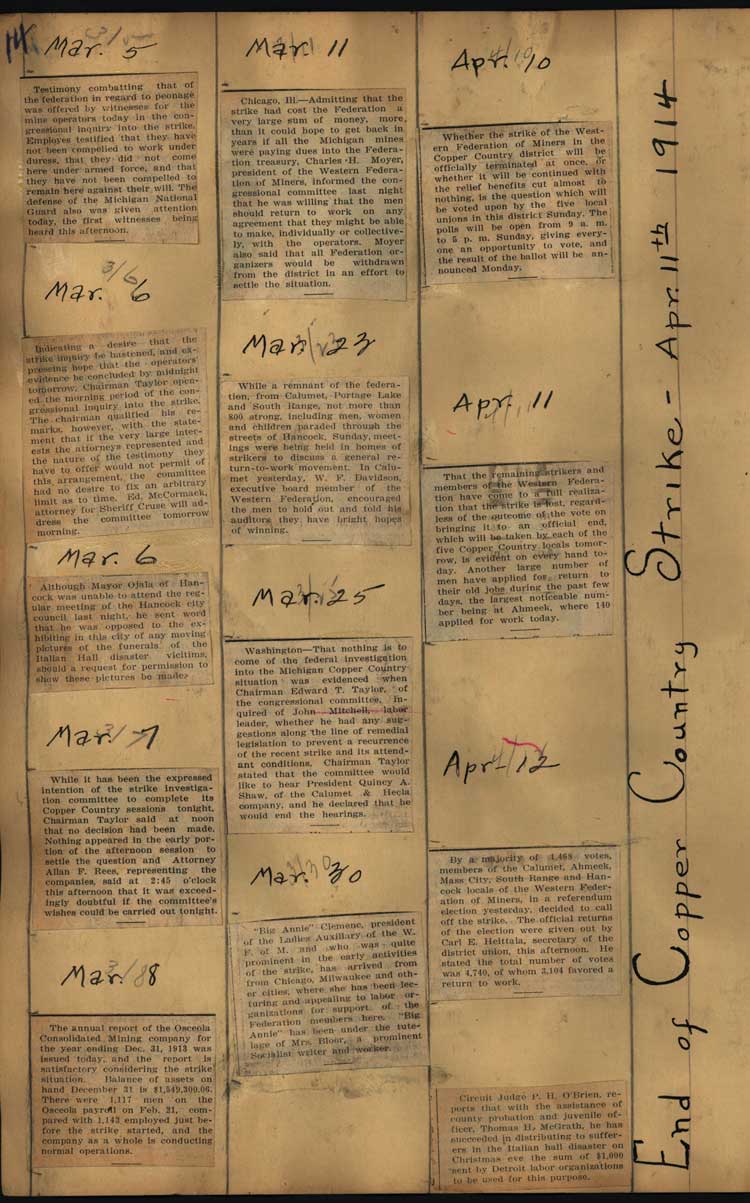 14
Mar. 5
Testimony combatting that of
the federation in regard to peonage
was offered by witnesses for the
mine operators today in the con-
gressional inquiry into the strike.
Employes testified that they have
not been compelled to work under
duress, that they did not come
here under armed force, and that
they have not been compelled to
remain here against their will. The
defense of the Michigan National
Guard also was given attention
today, the first witnesses being
heard this afternoon.
3/6
Mar. 6
Indicating a desire that the
strike inquiry be hastened, and ex-
pressing hope that the operators'
evidence be concluded by midnight
tomorrow, Chairman Taylor open-
ed the morning period of the con-
gressional inquiry into the strike.
The chairman qualified his re-
marks, however, with the state-
ment that if the very large inter-
ests the attorneys represented and
the nature of the testimony they
have to offer would not permit of
this arrangement, the committee
had no desire to fix an arbitrary
limit as to time. Ed. McCormack,
attorney for Sheriff Cruse will ad-
dress the committee tomorrow
morning.
Mar. 6
Although Mayor Ojala of Han-
cock was unable to attend the reg-
ular meeting of the Hancock city
council last night, he sent word
that he was opposed to the ex-
hibiting in this city of any moving
pictures of the funerals of the
Italian Hall disaster vicitims,
should a request for permission to
show these pictures be made.
Mar. 7
While it has been the expressed
intention of the strike investiga-
tion committee to complete its
Copper Country sessions tonight,
Chairman Taylor said at noon
that no decision had been made.
Nothing appeared in the early por-
tion of the afternoon session to
settle the question and Attorney
Allan F. Rees, representing the
companies, said at 2:45 o'clock
this afternoon that it was exceed-
ingly doubtful if the committee's
wishes could be carried out tonight.
Mar. 8
The annual report of the Osceola
Consolidated Mining company for
the year ending Dec. 31, 1913 was
issued today, and the report is
satisfactory considering the strike
situation. Balance of assets on
hand December 31 is $1,549,300.06.
There were 1,117 men on the
Osceola payroll on Feb. 21, com-
pared with 1,143 employed just be-
fore the strike started, and the
company as a whole is conducting
normal operations.
Mar. 11
Chicago, Ill.—Admitting that the
strike had cost the Federation a
very large sum of money, more,
than it could hope to get back in
years if all the Michigan mines
were paying dues into the Federa-
tion treasury, Charles H. Moyer,
president of the Western Federa-
tion of Miners, informed the con-
gressional committee last night
that he was willing that the men
should return to work on any
agreement that they might be able
to make, individually or collective-
ly, with the operators. Moyer
also said that all Federation or-
ganizers would be withdrawn
from the district in an effort to
settle the situation.
Mar. 23
While a remnant of the federa-
tion, from Calumet, Portage Lake
and South Range, not more than
800 strong, including men, women
and children paraded through the
streets of Hancock, Sunday, meet-
ings were being held in homes of
strikers to discuss a general re-
turn-to-work movement. In Calu-
met yesterday, W. F. Davidson,
executive board member of the
Western Federation, encouraged
the men to hold out and told his
auditors they have bright hopes
of winning.
Mar. 25
Washington—That nothing is to
come of the federal investigation
into the Michigan Copper Country
situation was evidenced when
Chairman Edward T. Taylor, of
the congressional committee, in-
quired of John Mitchell, labor
leader, whether he had any sug-
gestions along the line of remedial
legislation to prevent a recurrence
of the recent strike and its attend-
ant conditions. Chairman Taylor
stated that the committee would
like to hear President Quincy A.
Shaw, of the Calumet & Hecla
company, and he declared that he
would end the hearings.
Mar. 30
"Big Annie" Clemenc, president
of the Ladies Auxiliary of the W.
F. of M. and who was quite
prominent in the early activities
of the strike, has arrived from
from Chicago, Milwaukee and oth-
er cities, where she has been lec-
turing and appealing to labor or-
ganizations for support of the
Federation members here. "Big
Annie" has been under the tute-
lage of Mrs. Bloor, a prominent
Socialist writer and worker.
Apr. 10
Whether the strike of the West-
ern Federation of Miners in the
Copper Country district will be
officially terminated at once, or
whether it will be continued with
the relief benefits cut almost to
nothing, is the question which will
be voted upon by the five local
unions in this district Sunday. The
polls will be open from 9 a. m.
to 5 p. m. Sunday, giving every-
one an opportunity to vote, and
the result of the ballot will be an-
nounced Monday.
Apr. 11
That the remaining strikers and
members of the Western Federa-
tion have come to a full realiza-
tion that the strike is lost, regard-
less of the outcome of the vote on
bringing it to an official end,
which will be taken by each of the
five Copper Country locals tomor-
row, is evident on every hand to-
day. Another large number of
men have applied for return to
their old jobs during the past few
days, the largest noticeable num-
ber being at Ahmeek, where 140
applied for work today.
Apr. 12
By a majority of 1,468 votes,
members of the Calumet, Ahmeek,
Mass City, South Range and Han-
cock locals of the Western Feder-
ation of Miners, in a referendum
election yesterday, decided to call
off the strike. The official returns
of the election were given out by
Carl E. Heittala, secretary of the
district union, this afternoon. He
stated the total number of votes
was 4,740, of whom 3,104 favored a
return to work.
Circuit Judge P. H. O'Brien, re-
ports that with the assistance of
county probation and juvenile of-
ficer, Thomas H. McGrath, he has
succeeded in distributing to suffer-
ers in the Italian hall disaster on
Christmas eve the sum of $1,000
sent by Detroit labor organizations
to be used for this purpose.
End of Copper Country Strike - Apr. 11th 1914